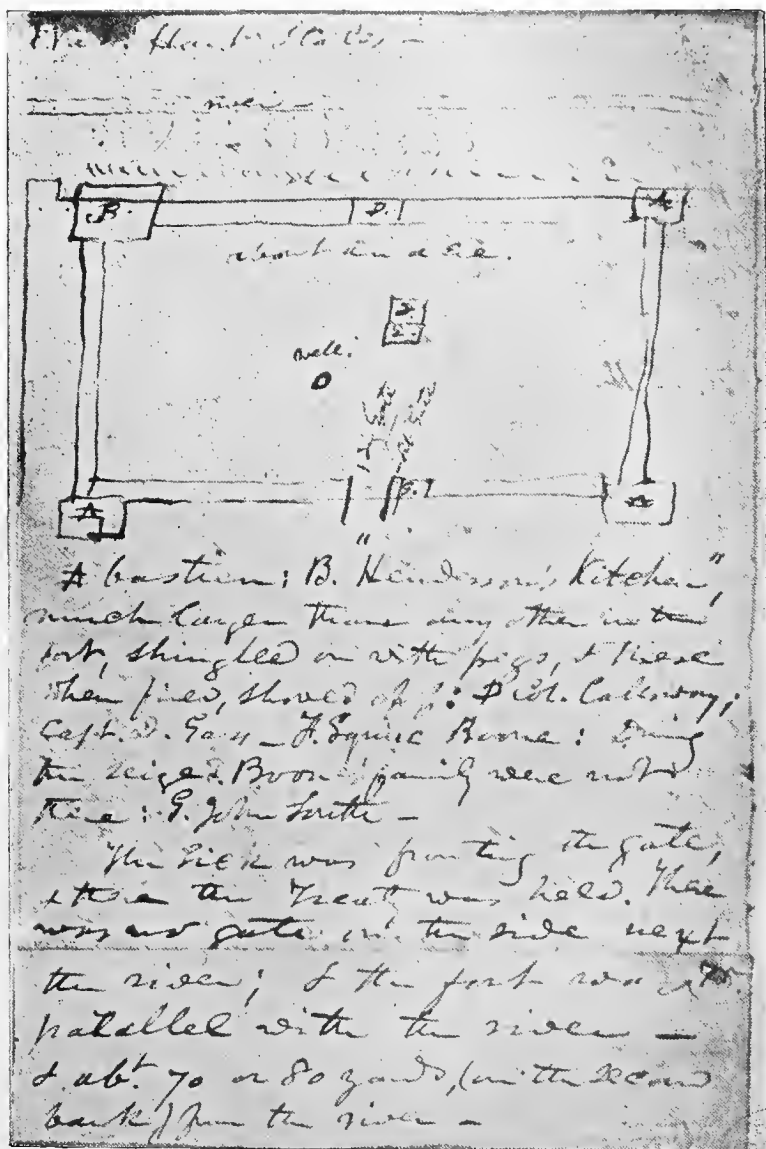 river —
B.
D.
A
about an acre.
2.
2.
well.
G.
A
A
A bastion; B. "Henderson's Kitchen",
much larger than any other in the
fort, shingled on with pegs, & these
when fired, shoved off: D Col. Calloway;
Capt. D. Gass — F. Squire Boone: During
the seige D. Boone's family were not
there: G. John South —
The Lick was fronting the gate,
& there the Treaty was held. There
was no gate on the side next
the river; & the fort was
parallel with the river —
& abt. 70 or 80 yards, (on the second
bank) from the river —